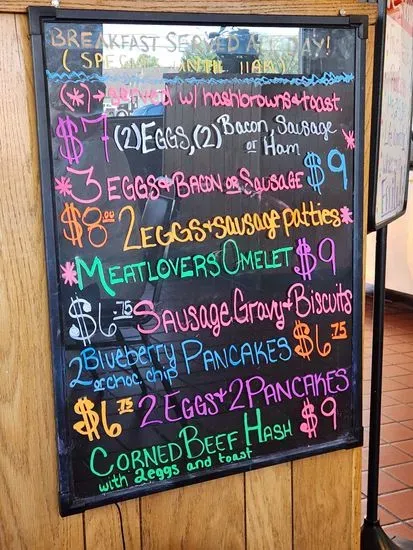 BREAKFAST SERVED ALL DAY!
(SPECIALS UNTIL 11AM)
(*) → served w/ hashbrowns & toast.
$7 (2) EGGS, (2) Bacon, Sausage or Ham *
* 3 EGGS & BACON OR SAUSAGE $9
$8.00 2 EGGS & sausage patties *
* MEATLOVERS OMELET $9
$6.75 Sausage Gravy & Biscuits
2 Blueberry or choc. chip PANCAKES $6.75
$6.75 2 EGGS & 2 PANCAKES
CORNED BEEF HASH $9
with 2 eggs and toast